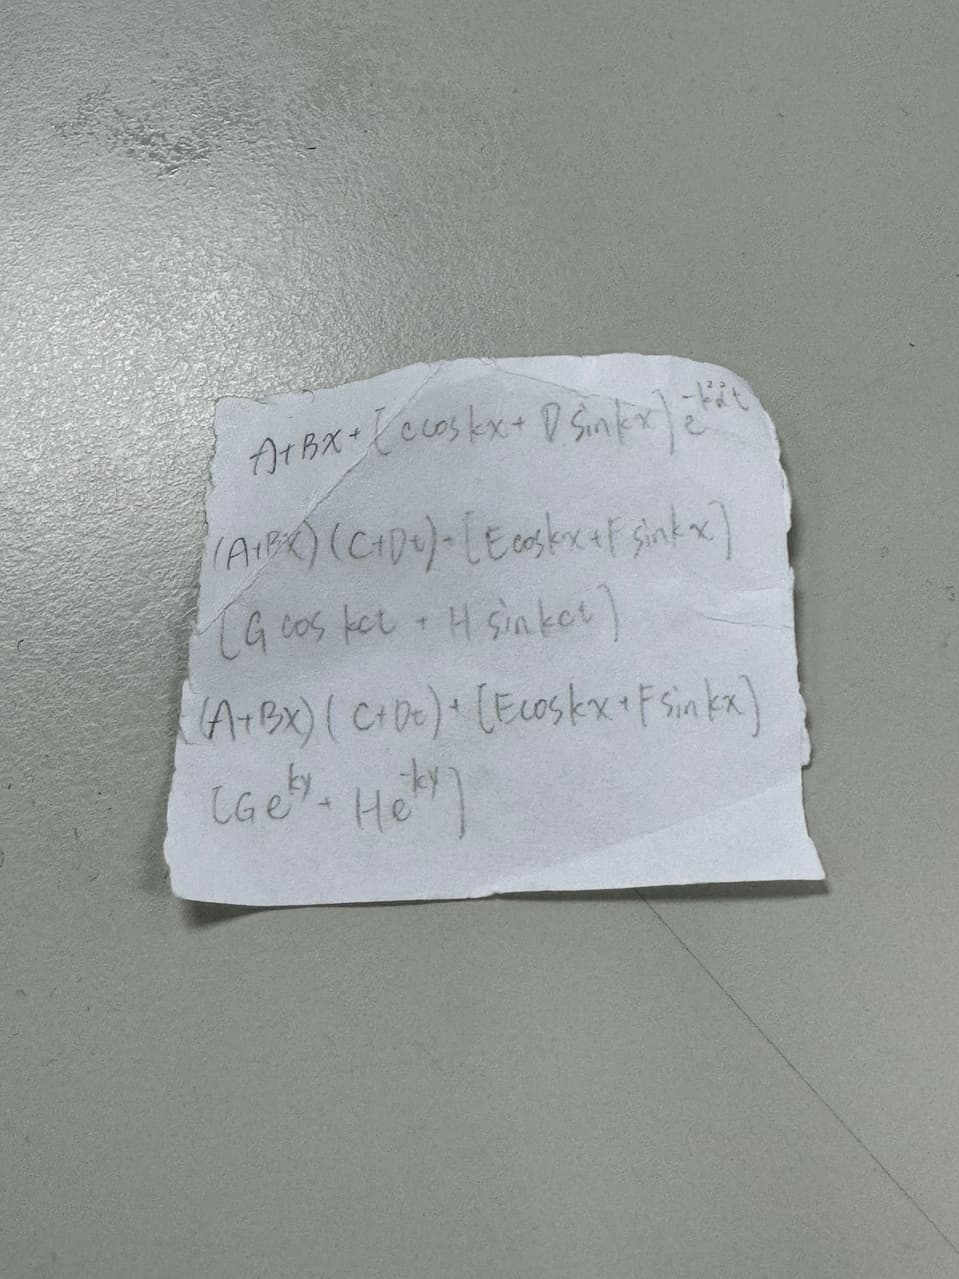 A+Bx+[ccoskx+Dsinkx]e^-k²α²t
(A+Bx)(C+Dt)+[Ecoskx+Fsinkx]
[G cos kct + H sinkct]
(A+Bx)(C+Dt)+[Ecoskx+Fsinkx]
[Ge^ky + He^-ky]